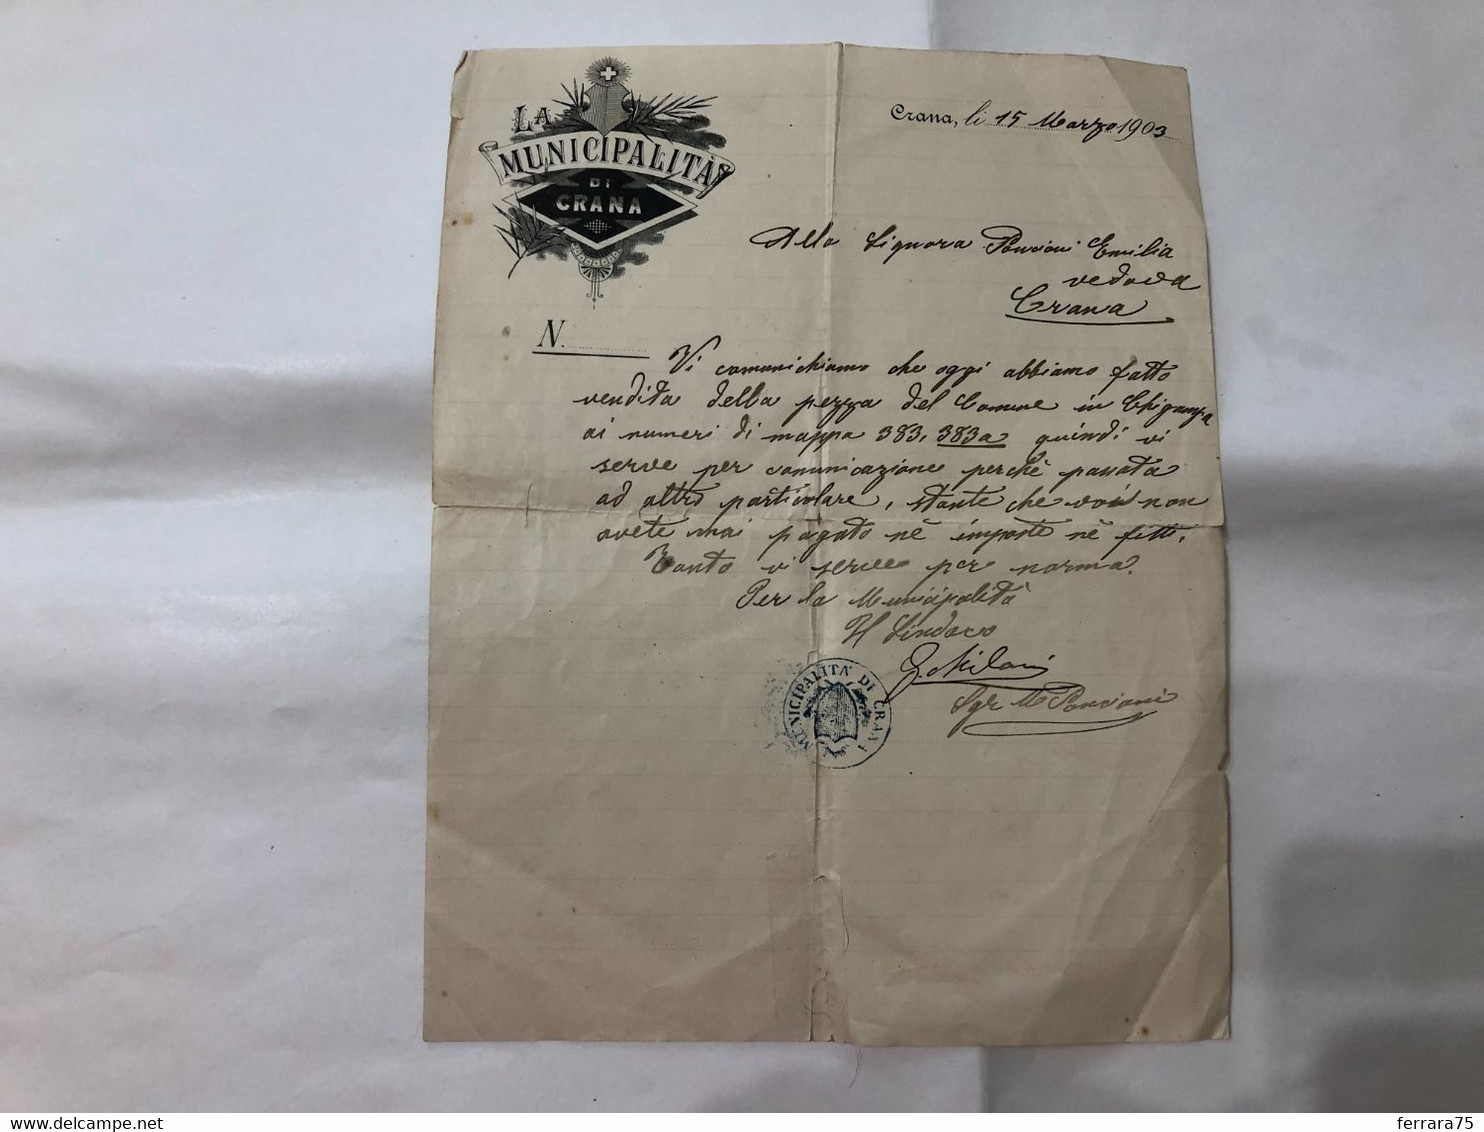 LA
MUNICIPALITÀ
DI
CRANA
Crana, li 15 Marzo 1903
Alla Signora Poncioni Emilia
vedova
Crana
N.
Vi comunichiamo che oggi abbiamo fatto
vendita della pezza del Comune in
ai numeri di mappa 383, 383a quindi vi
serve per comunicazione perchè passata
ad altro particolare, stante che voi non
avete mai pagato nè imposte nè fitti.
Tanto vi serve per norma.
Per la Municipalità
Il Sindaco
G. Milani
Sgr. M Poncioni
MUNICIPALITA' DI CRANA
www.delcampe.net
ferrara75